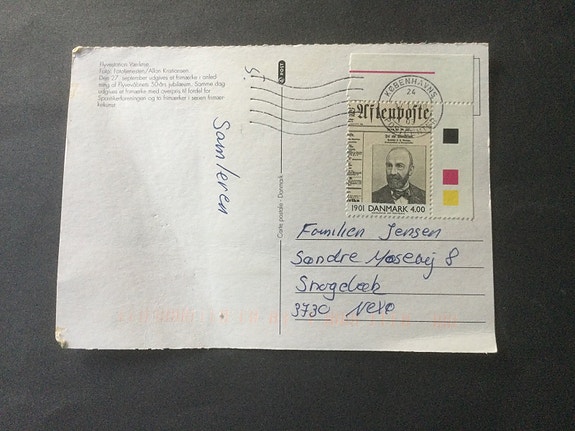 Flyvestation Værløse.
Foto: Fototjenesten/Allan Kristiansen
Den 27. september udgives et frimærke i anled
ning af Flyvevåbnets 50-års jubilæum. Samme dag
udgives et frimærke med overpris til fordel for
Scleroseforeningen og to frimærker i serien frimær
kekunst.
POST
Samleren
Carte postale · Danmark
KØBENHAVNS
24
Aftenposte
1901 DANMARK 4.00
Familien Jensen
Søndre Mosevej 8
Snogebæk
3730 Nexø